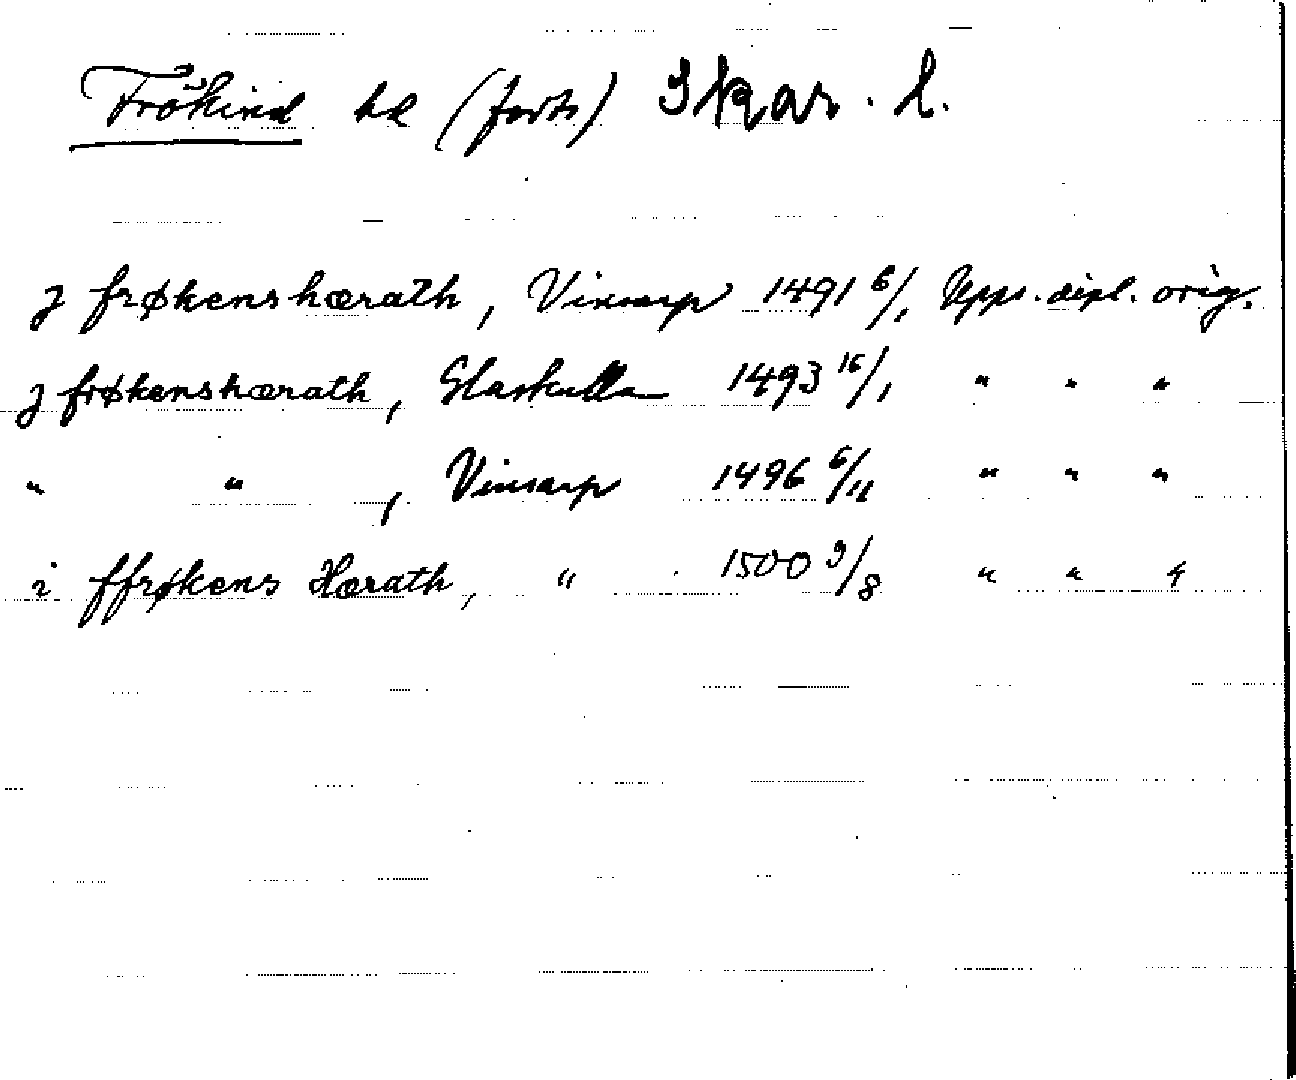 Frökind hd (forts) Skar. l.
j frøkenshærath, Vinsarp 1491 6/1 Upps. dipl. orig.
j frøkenshærath, Glaskulla 1493 16/1 " " "
" " , Vinsarp 1496 6/11 " " "
i ffrøkens Hærath, " 1500 9/8 " " "